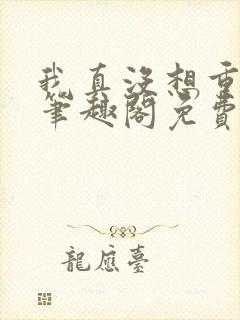 我真没想重
笔趣阁免费
龍應臺